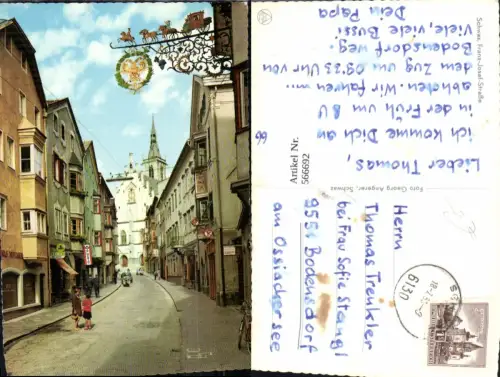 Schwaz, Franz-Josef-Straße
Lieber Thomas,
ich komme Dich am
in der Früh um 8U
abholen. Wir fahren m...
dem Zug um 09:23 Uhr von
Bodensdorf weg.
Viele, viele Bussi
Dein Papa
Foto Georg Angerer, Schwaz
Artikel Nr.
566692
99
Herrn
Thomas Trenkler
bei Frau Sofie Stangl
9551 Bodensdorf
am Ossiachersee
6130